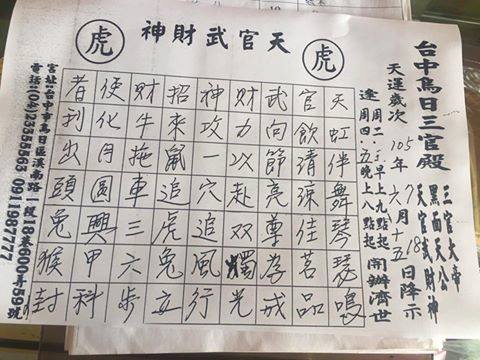 虎
天官武財神
虎
台中烏日三官殿
天運歲次105年六月十五日降示
7 18
三官大帝
黑面天公
天官武財神
週二、三早上九點起
逢週四、五晚上八點起
開辦濟世
天虹伴舞琴瑟鳴
官飲清涼佳茗品
武向節亮尊孝戒
財力以赴双獨光
神攻一穴追風行
招來鼠追虎兔立
財牛拖車三六步
使化月圓興甲科
者刊出頭兔猴封
宮址:台中市烏日區溪南路一段18巷600弄59號
電話:(04)23355563 0911987777